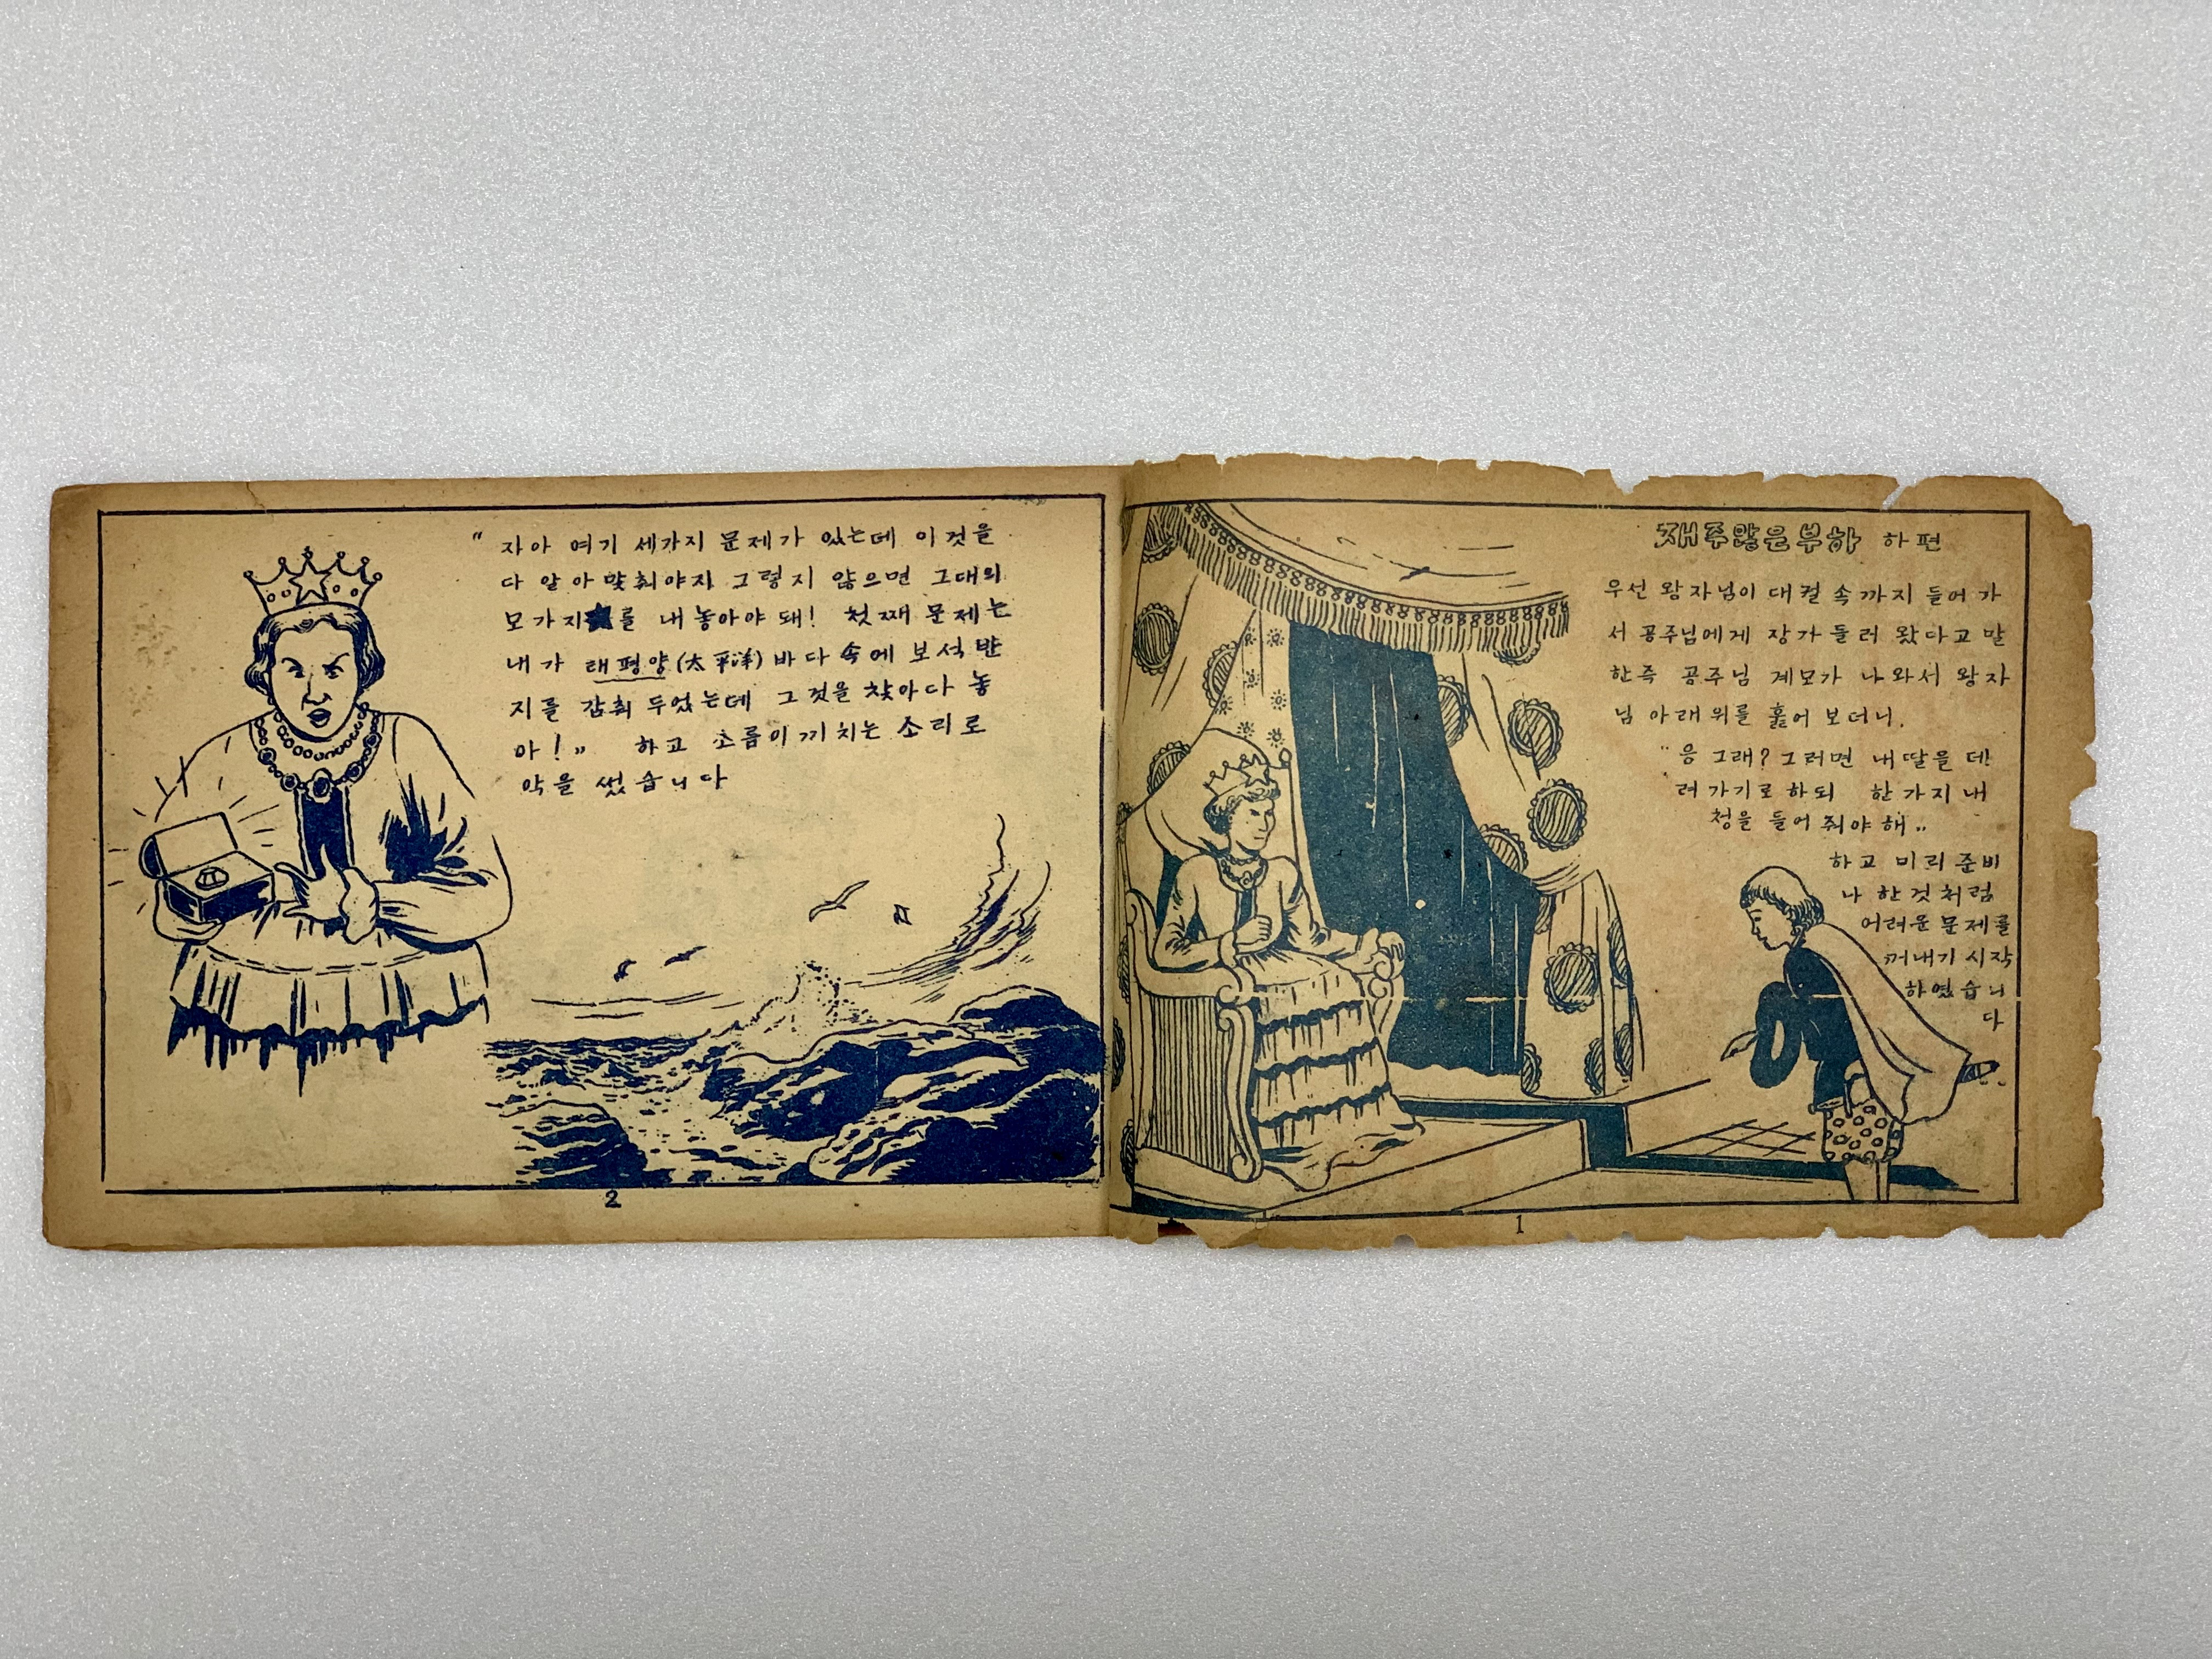 재주많은부하 하편
우선 왕자님이 대궐 속까지 들어 가
서 공주님에게 장가 들러 왔다고 말
한즉 공주님 계모가 나와서 왕자
님 아래 위를 훑어 보더니.
"응 그래? 그러면 내 딸을 데!
려 가기로 하되 한 가지 내
청을 들어 줘야 해"
하고 미리 준비
나 한것 처럼
어려운 문제를
꺼내기 시작
하였습니
다
1
"자아 여기 세가지 문제가 있는데 이것을
다 알아 맞춰야지 그렇지 않으면 그대의
모가지를 내 놓아야 돼! 첫째 문제는
내가 래평양(太平洋) 바다 속에 보석 반
지를 감춰 두었는데 그것을 찾아다 놓
아!" 하고 소름이 끼치는 소리로
악을 썼습니다
2